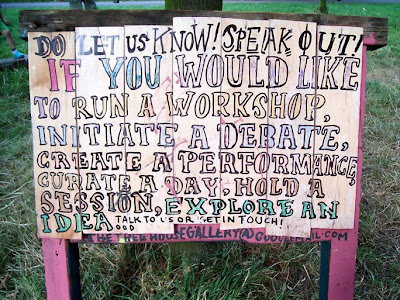 DO LET US KNOW! SPEAK OUT!
IF YOU WOULD LIKE
TO RUN A WORKSHOP,
INITIATE A DEBATE,
CREATE A PERFORMANCE,
CURATE A DAY, HOLD A
SESSION, EXPLORE AN
IDEA... TALK TO US OR GET IN TOUCH!
THETREEHOUSEGALLERY@GOOGLEMAIL.COM